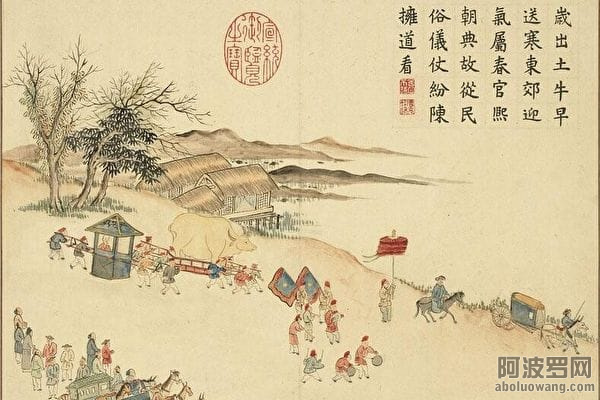 歲出土牛早
送寒東郊迎
氣屬春官熙
朝典故從民
俗儀仗紛陳
擁道看
宣統
御覽
之寶
阿波罗网
aboluowang.com